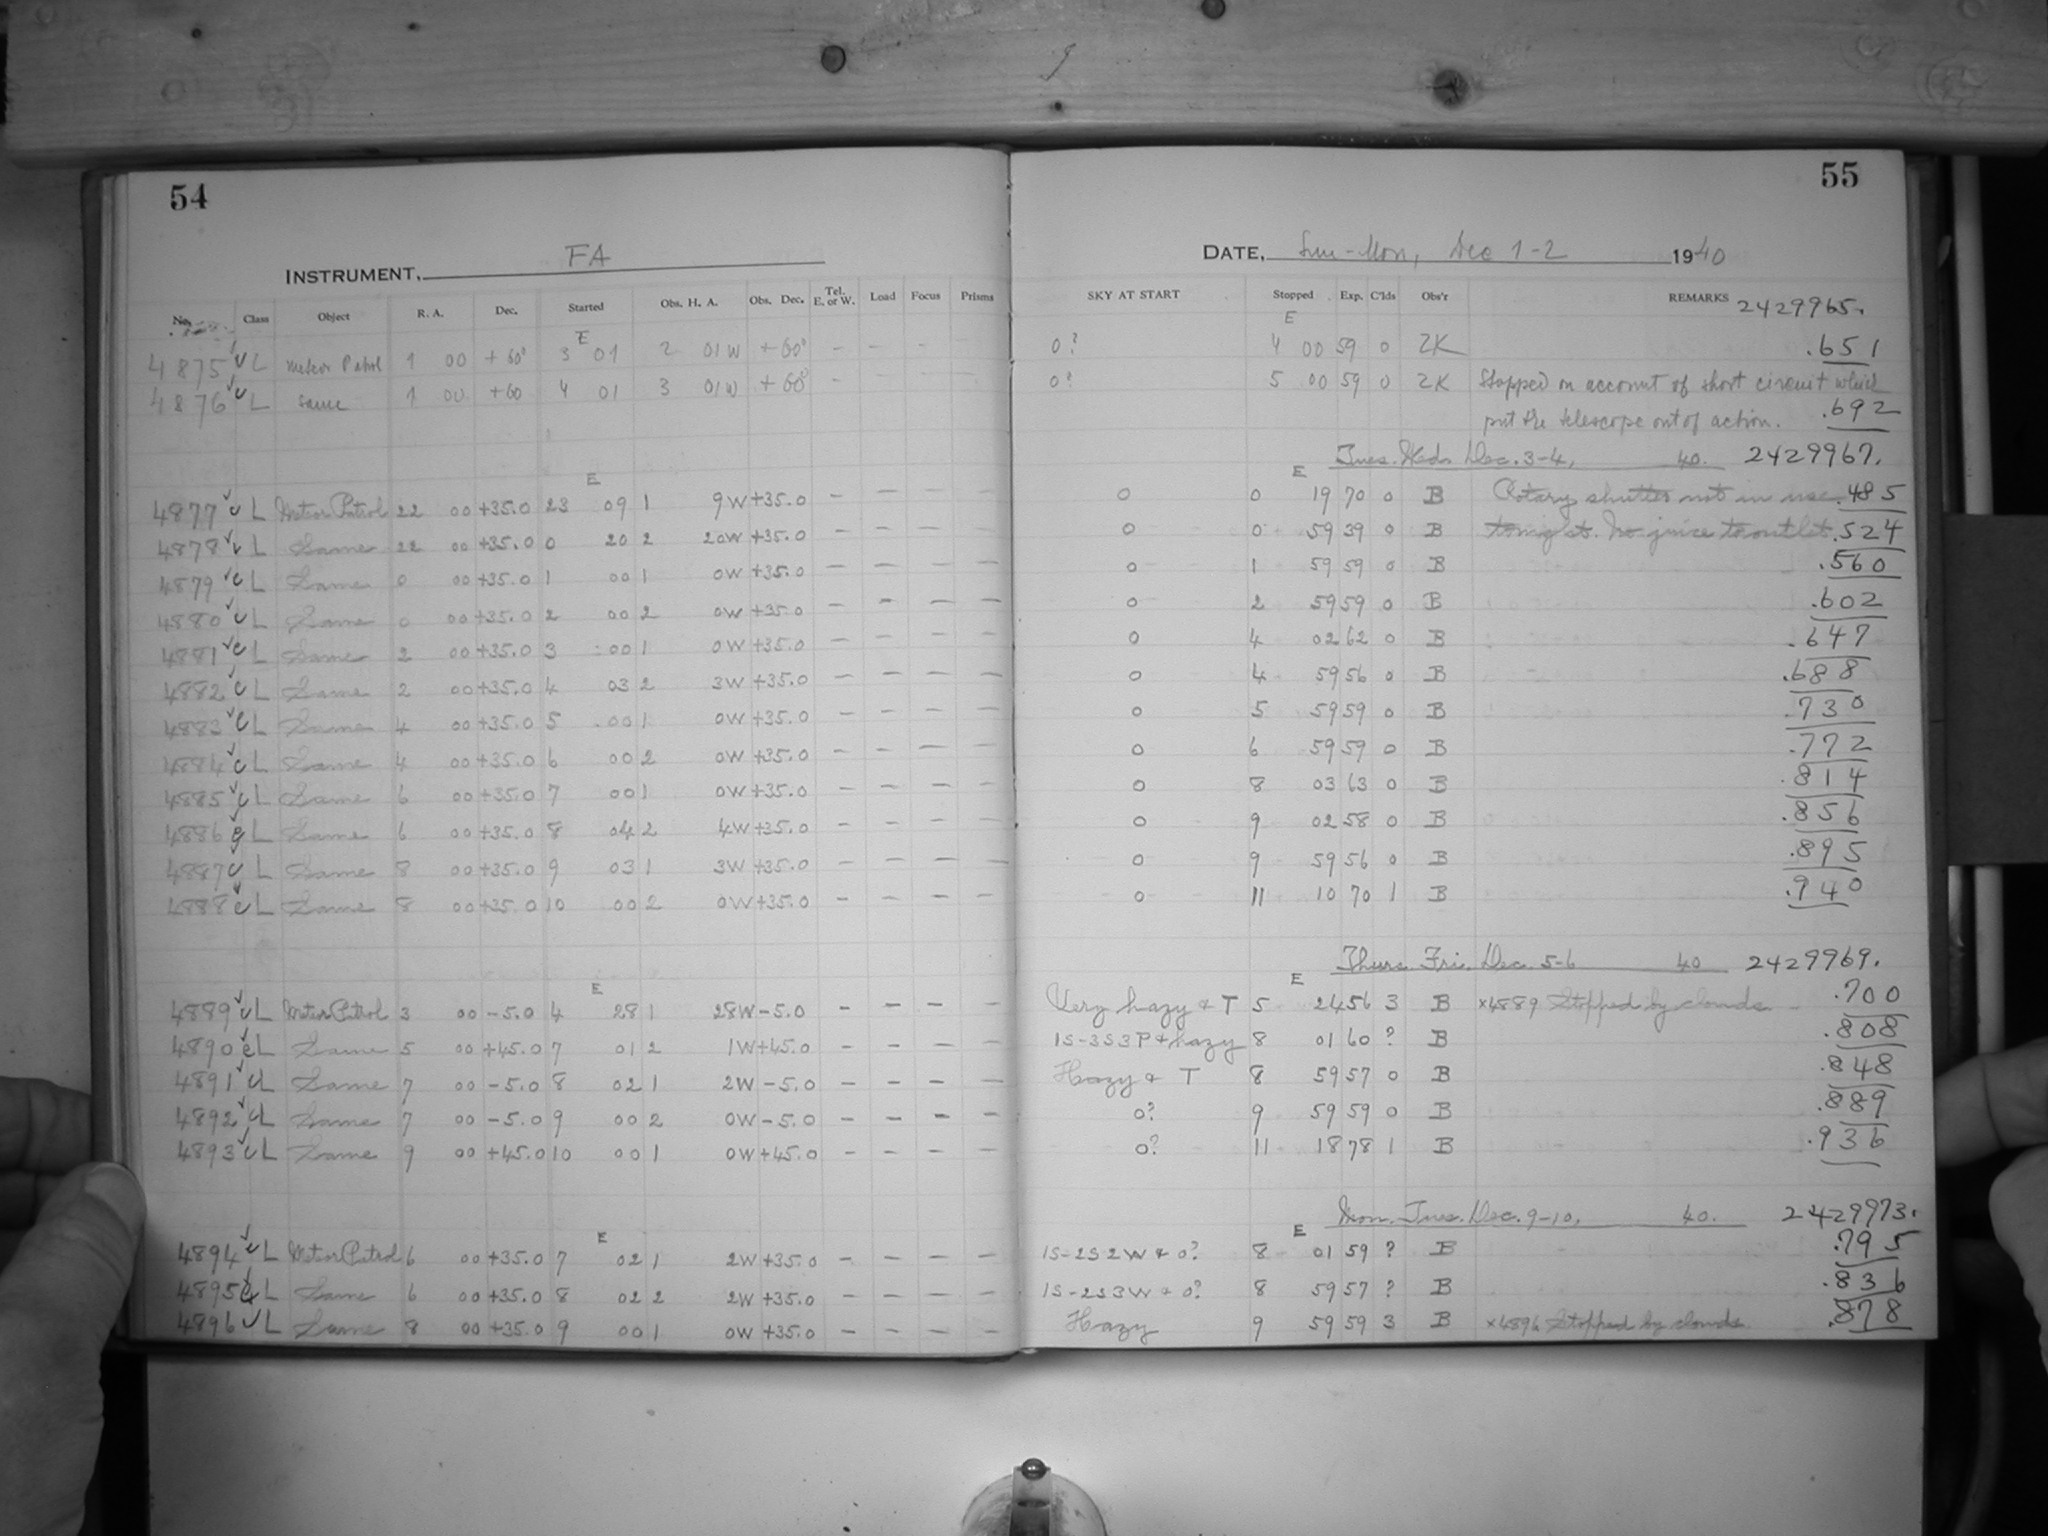 54
INSTRUMENT, FA
No. Class Object R. A. Dec. Started Obs. H. A. Obs. Dec. Tel. E. or W. Load Focus Prisms
E
4875 L Meteor Patrol 1 00 +60° 3 01 2 01W +60° - - - -
4876 L Same 1 00 +60 4 01 3 01W +60° - - - -
E
4877 L Meteor Patrol 22 00 +35.0 23 09 1 9W +35.0 - - - -
4878 L Same 22 00 +35.0 0 20 2 20W +35.0 - - - -
4879 L Same 0 00 +35.0 1 00 1 0W +35.0 - - - -
4880 L Same 0 00 +35.0 2 00 2 0W +35.0 - - - -
4881 L Same 2 00 +35.0 3 00 1 0W +35.0 - - - -
4882 L Same 2 00 +35.0 4 03 2 3W +35.0 - - - -
4883 L Same 4 00 +35.0 5 00 1 0W +35.0 - - - -
4884 L Same 4 00 +35.0 6 00 2 0W +35.0 - - - -
4885 L Same 6 00 +35.0 7 00 1 0W +35.0 - - - -
4886 L Same 6 00 +35.0 8 04 2 4W +35.0 - - - -
4887 L Same 8 00 +35.0 9 03 1 3W +35.0 - - - -
4888 L Same 8 00 +35.0 10 00 2 0W +35.0 - - - -
E
4889 L Meteor Patrol 3 00 -5.0 4 28 1 28W -5.0 - - - -
4890 L Same 5 00 +45.0 7 01 2 1W +45.0 - - - -
4891 L Same 7 00 -5.0 8 02 1 2W -5.0 - - - -
4892 L Same 7 00 -5.0 9 00 2 0W -5.0 - - - -
4893 L Same 9 00 +45.0 10 00 1 0W +45.0 - - - -
E
4894 L Meteor Patrol 6 00 +35.0 7 02 1 2W +35.0 - - - -
4895 L Same 6 00 +35.0 8 02 2 2W +35.0 - - - -
4896 L Same 8 00 +35.0 9 00 1 0W +35.0 - - - -
55
DATE, Sun-Mon, Dec 1-2 1940
SKY AT START Stopped Exp. C'lds Obs'r REMARKS 2429965.
E
0? 4 00 59 0 2K .651
0? 5 00 59 0 2K Stopped on account of short circuit which
put the telescope out of action. .692
E Tues. Wed. Dec. 3-4, 40. 2429967.
0 0 19 70 0 B Rotary shutter not in use .485
0 0 59 39 0 B tonight. No juice to outlet. .524
0 1 59 59 0 B .560
0 2 59 59 0 B .602
0 4 02 62 0 B .647
0 4 59 56 0 B .688
0 5 59 59 0 B .730
0 6 59 59 0 B .772
0 8 03 63 0 B .814
0 9 02 58 0 B .856
0 9 59 56 0 B .895
0 11 10 70 1 B .940
E Thurs. Fri. Dec. 5-6 40 2429969.
Very hazy & T 5 24 56 3 B x4889 Stopped by clouds. .700
1S-3S3P & hazy 8 01 60 ? B .808
Hazy & T 8 59 57 0 B .848
0? 9 59 59 0 B .889
0? 11 18 78 1 B .936
E Mon. Tues. Dec. 9-10, 40. 2429973.
1S-2S2W & 0? 8 01 59 ? B .795
1S-2S3W & 0? 8 59 57 ? B .836
Hazy 9 59 59 3 B x4896 Stopped by clouds. .878